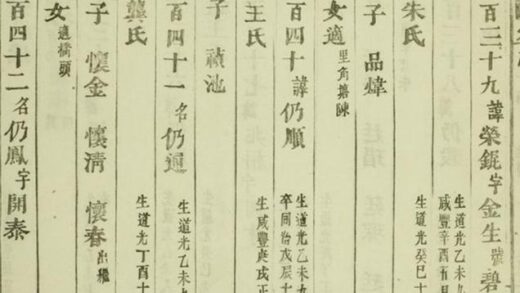 百三十九諱榮錕字金生號碧
生道光乙未九
咸豐辛酉有月
朱氏
生道光癸巳十
子 品煒
女適里角塘陳
百四十諱仍順
生道光乙未九
卒同治戊辰十
王氏
生咸豐庚戌正
子 禎池
百四十一名仍通
生道光乙未
龔氏
生道光丁酉十
子 懷金 懷清 懷春出繼
女適橋頭
百四十二名仍鳳字開泰